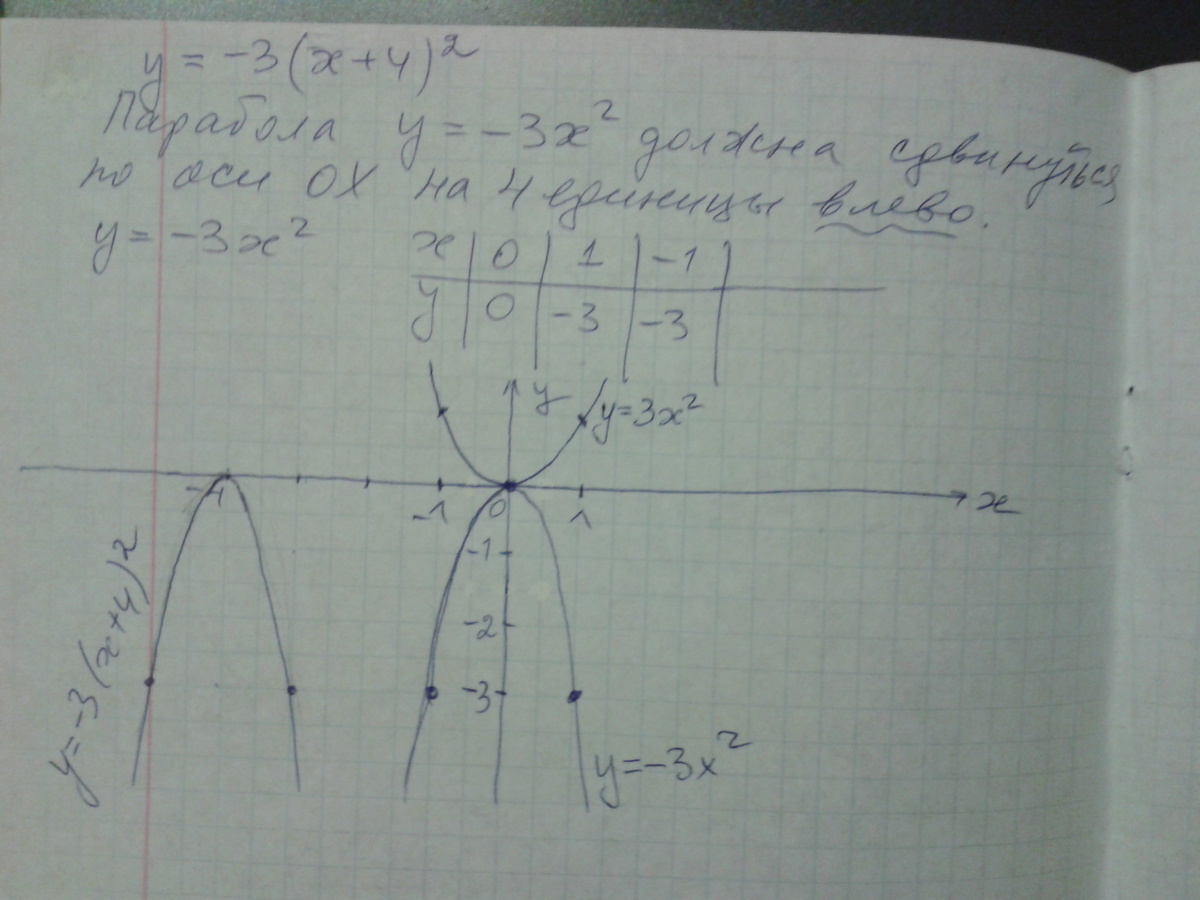 y = -3(x+4)²
Парабола y = -3x² должна сдвинуться
по оси OX на 4 единицы влево.
y = -3x²
x | 0 | 1 | -1 |
y | 0 | -3 | -3 |
y
y=3x²
-4
-1
0
1
x
-1
-2
-3
y=-3(x+4)²
y=-3x²